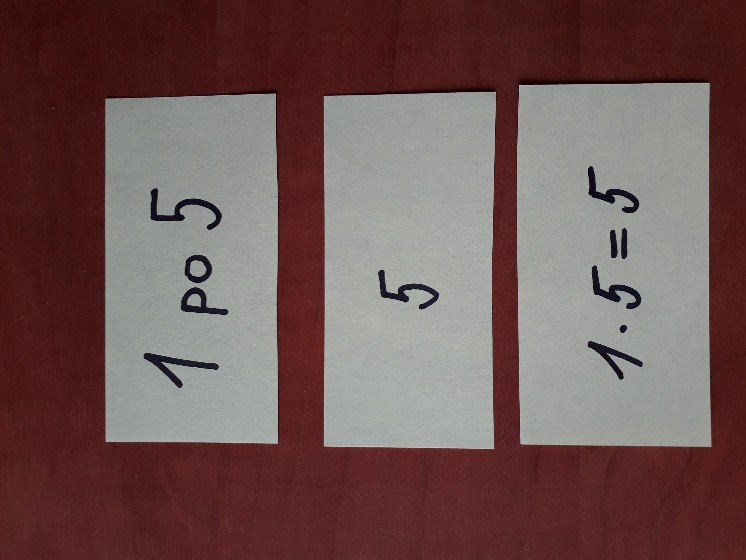 1 po 5
5
1·5=5